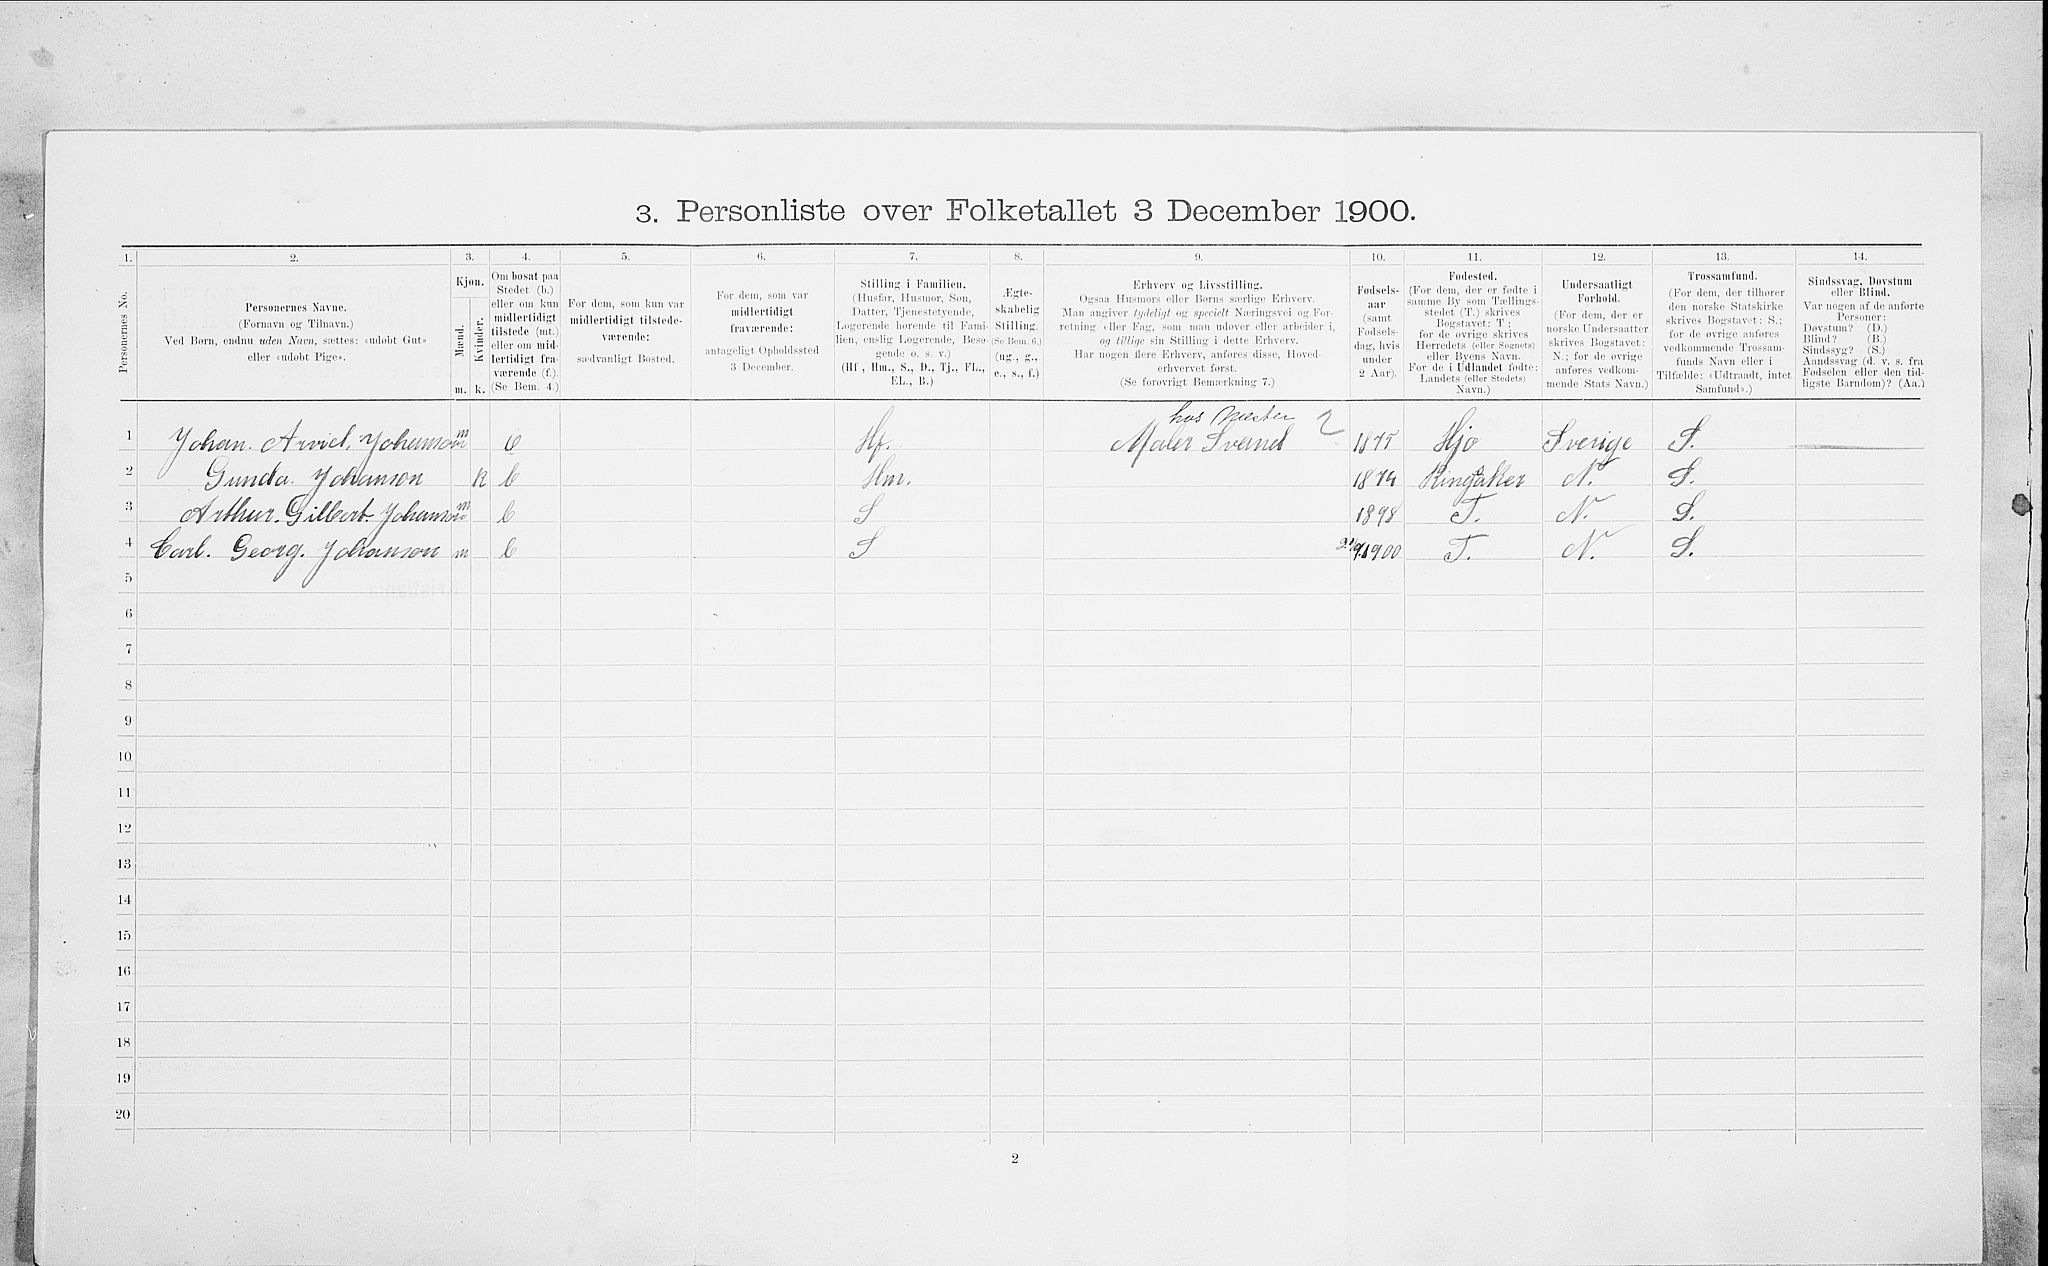 3. Personliste over Folketallet 3 December 1900.
1. 2. 3. 4. 5. 6. 7. 8. 9. 10. 11. 12. 13. 14.
Personernes No.
Personernes Navne.
(Fornavn og Tilnavn.)
Ved Børn, endnu uden Navn, sættes: «udøbt Gut»
eller «udøbt Pige».
Kjøn.
Mænd.
Kvinder.
m. k.
Om bosat paa
Stedet (b.)
eller om kun
midlertidigt
tilstede (mt.)
eller om mid-
lertidigt fra-
værende (f.).
(Se Bem. 4.)
For dem, som kun var
midlertidigt tilstede-
værende:
sædvanligt Bosted.
For dem, som var
midlertidigt
fraværende:
antageligt Opholdssted
3 December.
Stilling i Familien.
(Husfar, Husmor, Søn,
Datter, Tjenestetyende,
Logerende hørende til Fami-
lien, enslig Logerende, Besø-
gende o. s. v.)
(Hf., Hm., S., D., Tj., FL.,
EL., B.)
Ægte-
skabelig
Stilling.
(Se Bem. 6.)
(ug., g.,
e., s., f.)
Erhverv og Livsstilling.
Ogsaa Husmors eller Børns særlige Erhverv.
Man angiver tydeligt og specielt Næringsvei og For-
retning eller Fag, som man udøver eller arbeider i,
og tillige sin Stilling i dette Erhverv.
Har nogen flere Erhverv, anføres disse, Hoved-
erhvervet først.
(Se forøvrigt Bemærkning 7.)
Fødsels-
aar
(samt
Fødsels-
dag, hvis
under
2 Aar).
Fødested.
(For dem, der er fødte i
samme By som Tællings-
stedet (T.) skrives
Bogstavet: T;
for de øvrige skrives
Herredets (eller Sognets)
eller Byens Navn.
For de i Udlandet fødte:
Landets (eller Stedets)
Navn.)
Undersaatligt
Forhold.
(For dem, der er
norske Undersaatter
skrives Bogstavet:
N.; for de øvrige
anføres vedkom-
mende Stats Navn.)
Trossamfund.
(For dem, der tilhører
den norske Statskirke
skrives Bogstavet: S.;
for de øvrige anføres
vedkommende Trossam-
funds Navn eller i
Tilfælde: «Udtraadt, intet
Samfund».)
Sindssvag, Døvstum
eller Blind.
Var nogen af de anførte
Personer:
Døvstum? (D.)
Blind? (B.)
Sindssyg? (S.)
Aandssvag (d. v. s. fra
Fødselen eller den tid-
ligste Barndom)? (Aa.)
hos Mæster 2
1 Johan. Arvid. Johanson m b Hf. Maler Svend 1875 Hjo Sverige S.
2 Gunda. Johanson k b Hm. 1874 Ringsaker N. S.
3 Arthur. Gilbert. Johanson m b S 1898 T. N. S.
4 Carl. Georg. Johanson m b S 1900 T. N. S.
5
6
7
8
9
10
11
12
13
14
15
16
17
18
19
20
2